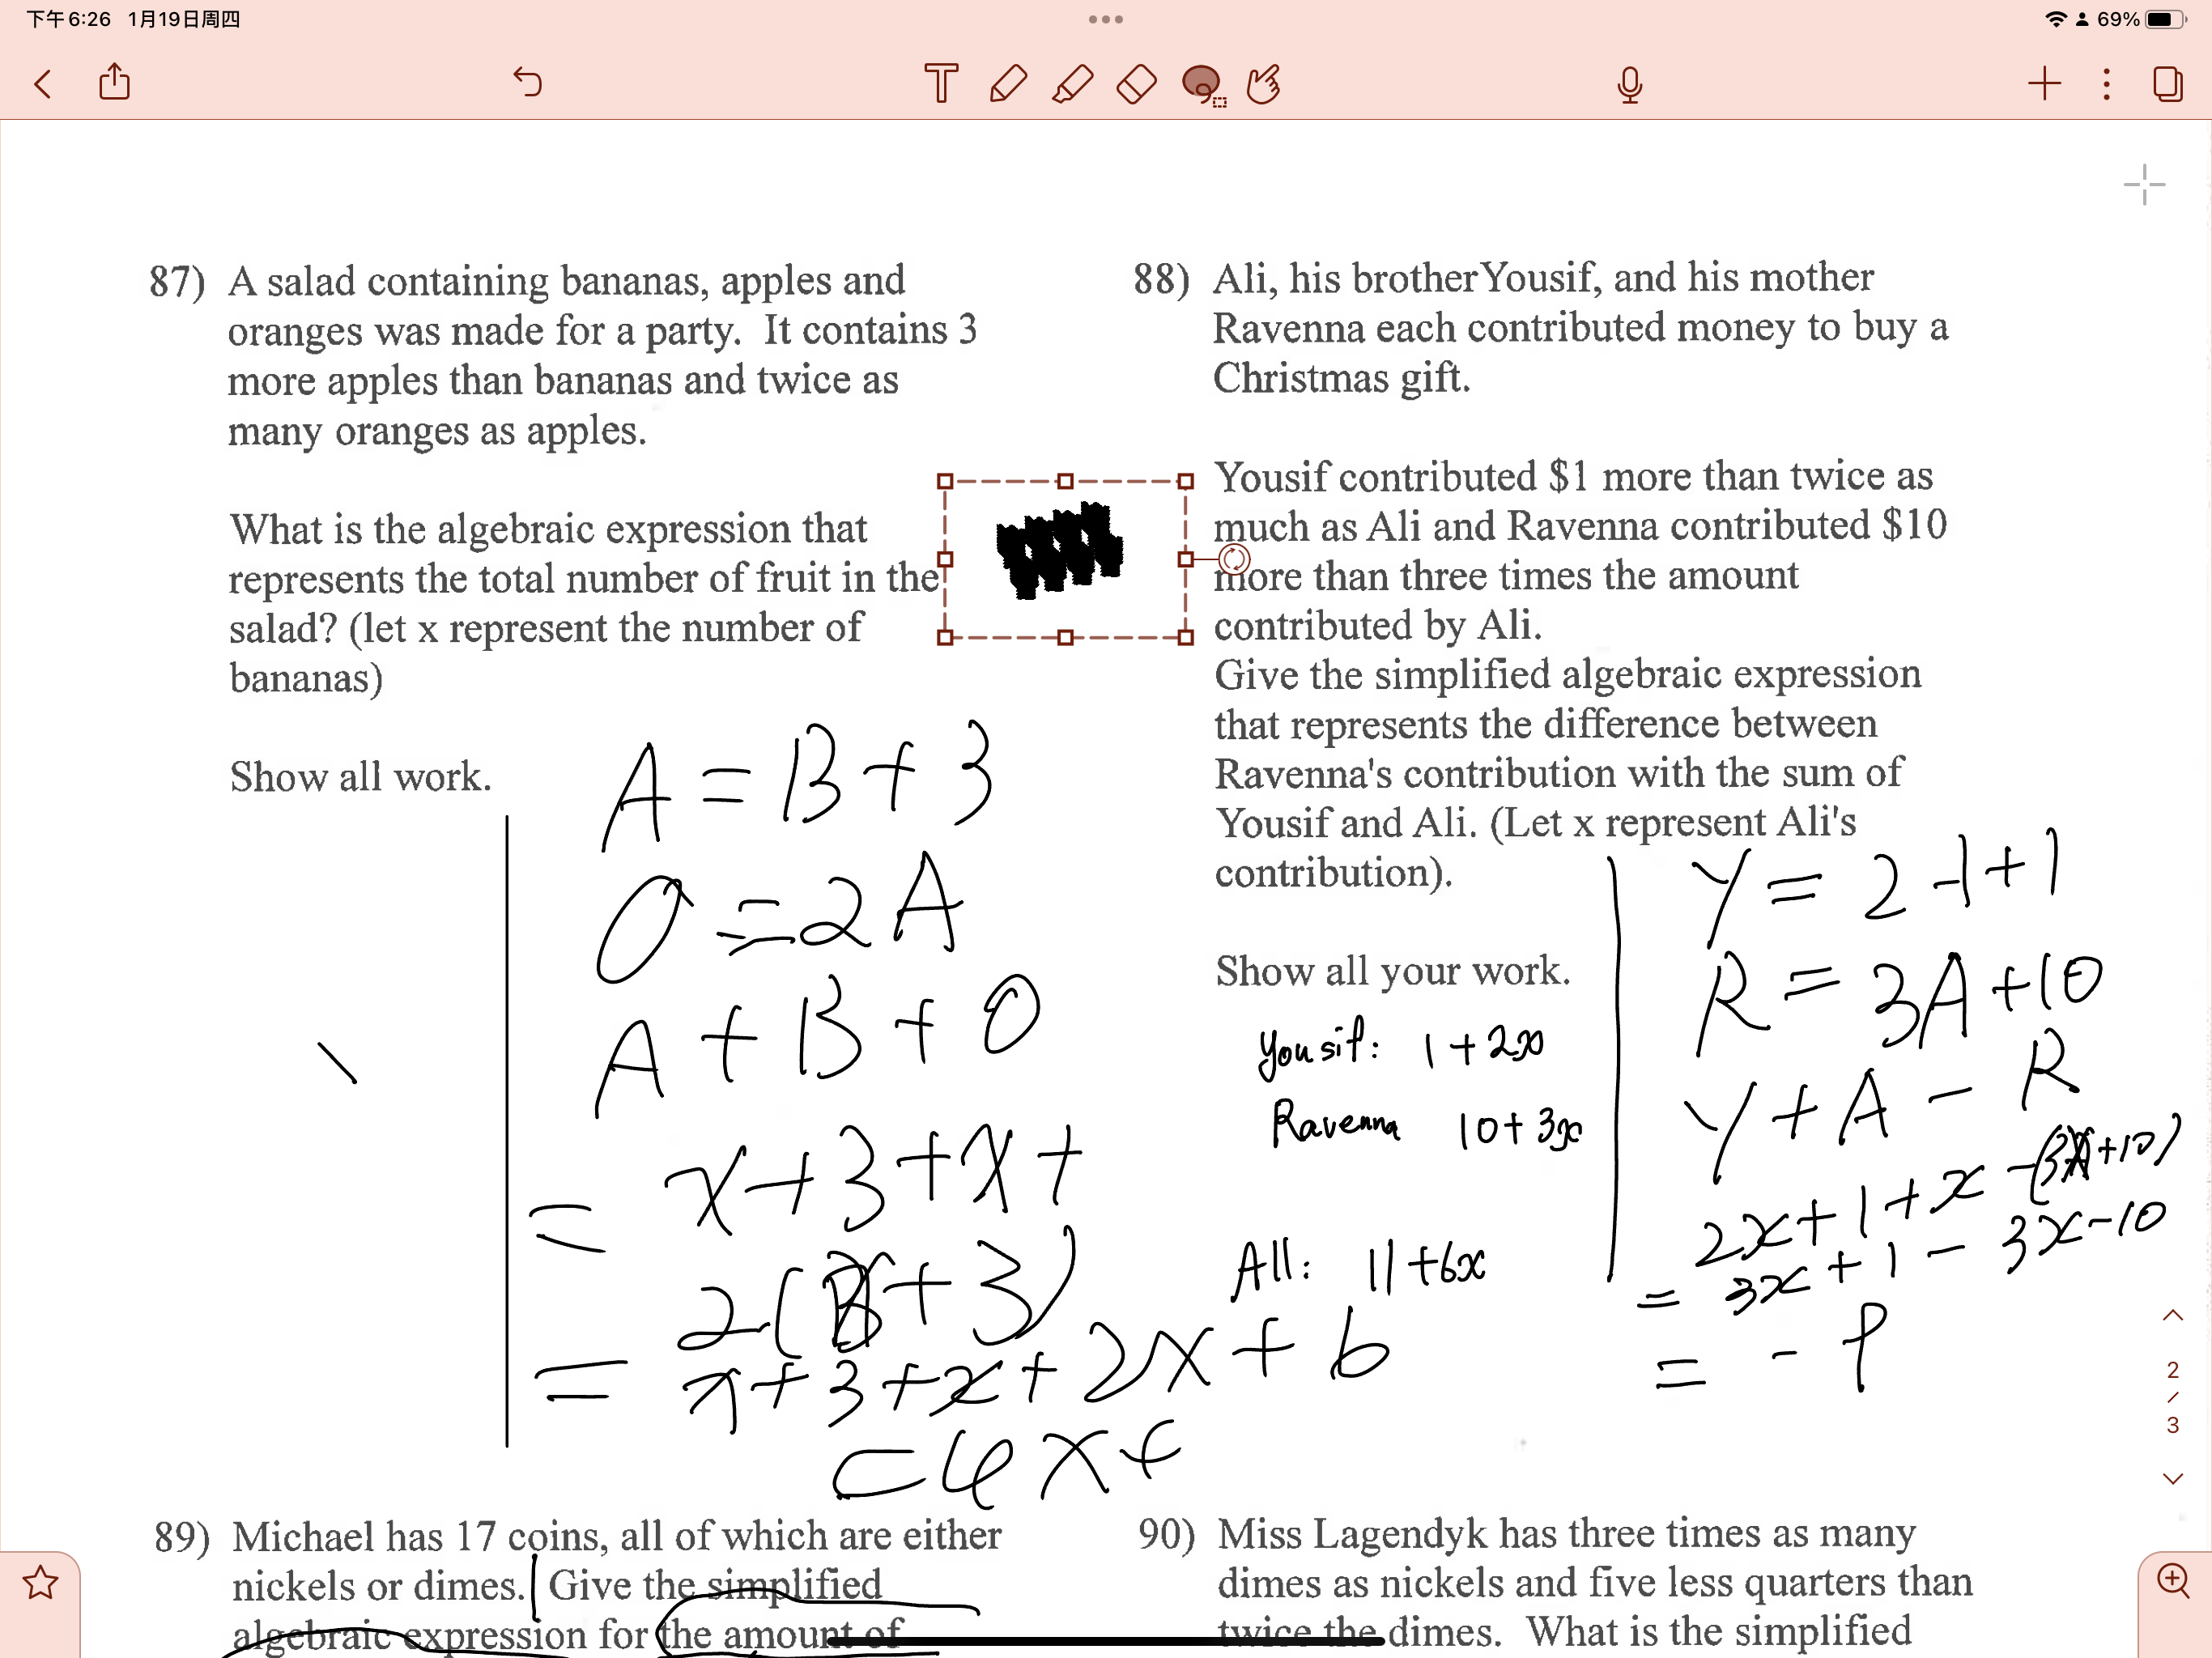 下午6:26 1月19日周四
69%
87) A salad containing bananas, apples and
oranges was made for a party. It contains 3
more apples than bananas and twice as
many oranges as apples.
What is the algebraic expression that
represents the total number of fruit in the
salad? (let x represent the number of
bananas)
Show all work.
A = B + 3
O = 2A
A + B + O
= x + 3 + x +
2( + 3)
= x + 3 + x + 2x + 6
= 4x +
88) Ali, his brother Yousif, and his mother
Ravenna each contributed money to buy a
Christmas gift.
Yousif contributed $1 more than twice as
much as Ali and Ravenna contributed $10
more than three times the amount
contributed by Ali.
Give the simplified algebraic expression
that represents the difference between
Ravenna's contribution with the sum of
Yousif and Ali. (Let x represent Ali's
contribution).
Show all your work.
Yousif: 1 + 2x
Ravenna 10 + 3x
All: 11 + 6x
Y = 2 + 1
R = 3A + 10
Y + A - R
2x + 1 + x - (3 + 10)
= 3x + 1 - 3x - 10
= - 9
2
/
3
89) Michael has 17 coins, all of which are either
nickels or dimes. Give the simplified
algebraic expression for the amount of
90) Miss Lagendyk has three times as many
dimes as nickels and five less quarters than
twice the dimes. What is the simplified